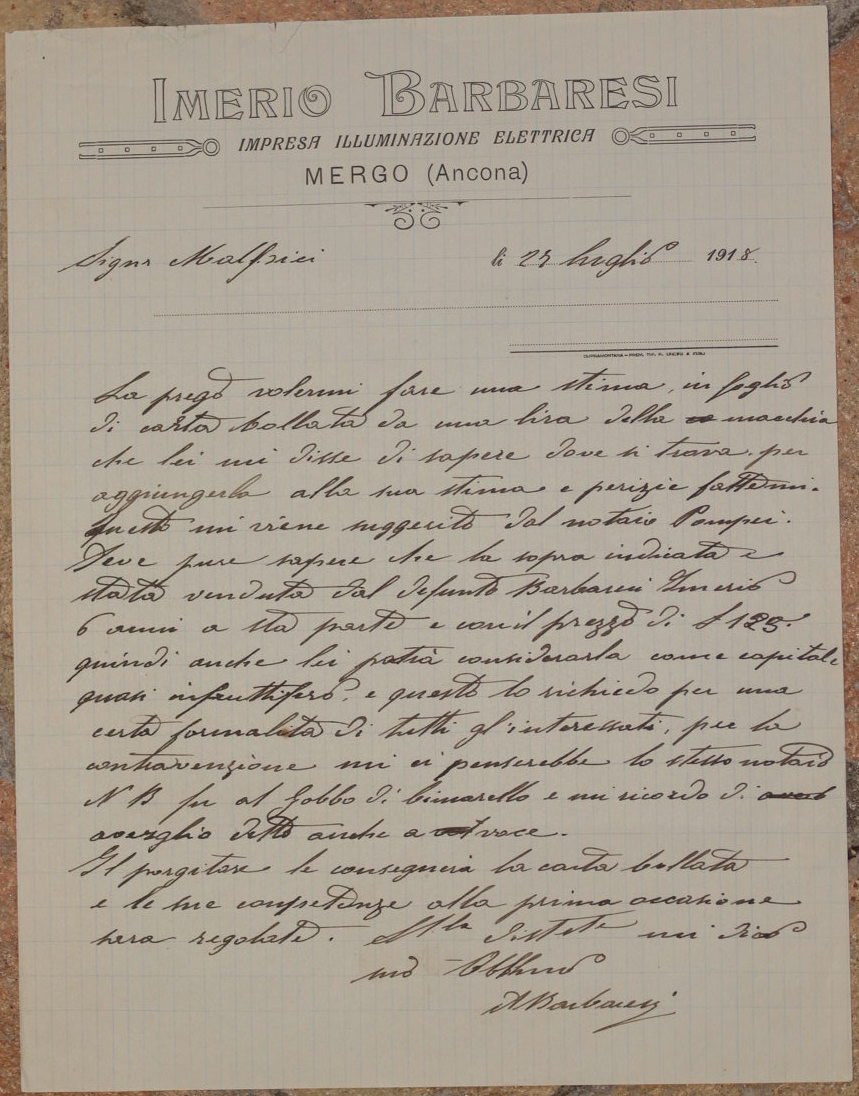 IMERIO BARBARESI
IMPRESA ILLUMINAZIONE ELETTRICA
MERGO (Ancona)
Signr Malfrici
li luglio 1918.
La prego volermi fare una stima, in foglio
di carta bollata da una lira della macchia
che lei mi disse di sapere dove si trova. per
aggiungerla alla sua stima e perizie fattemi.
questo mi viene suggerito dal notaio Pompei.
Deve pure sapere che la sopra indicata e
stata venduta dal defunto Barbaresi Imerio
6 anni a sta parte e con il prezzo di £ 125.
quindi anche lei potrà considerarla come capitale
quasi infruttifero. e questo lo richiedo per una
certa formalità di tutti gl'interessati, per la
contravenzione mi ci penserebbe lo stesso notaio
N B fu al Gobbo di e mi ricordo di
averglio detto anche a voce.
Il porgitore le consegnerà la carta bollata
e le sue competenze alla prima occasione
sara regolate. mi dico
suo
A Barbaresi